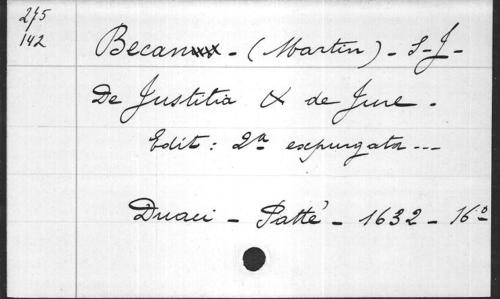 275
142
Becan - (Martin) - S-J-
De Justitia & de Jure -
Edit: 2a expurgata ---
Duaci - Patté - 1632 - 16°